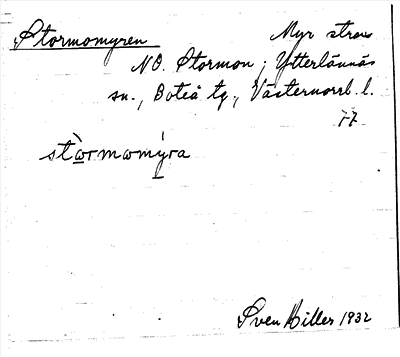 Stormomyren Myr strax
NO. Stormon, Ytterlännäs
sn., Boteå tg., Västernorrl. l.
77
stòrmomýra
Sven Hiller 1932